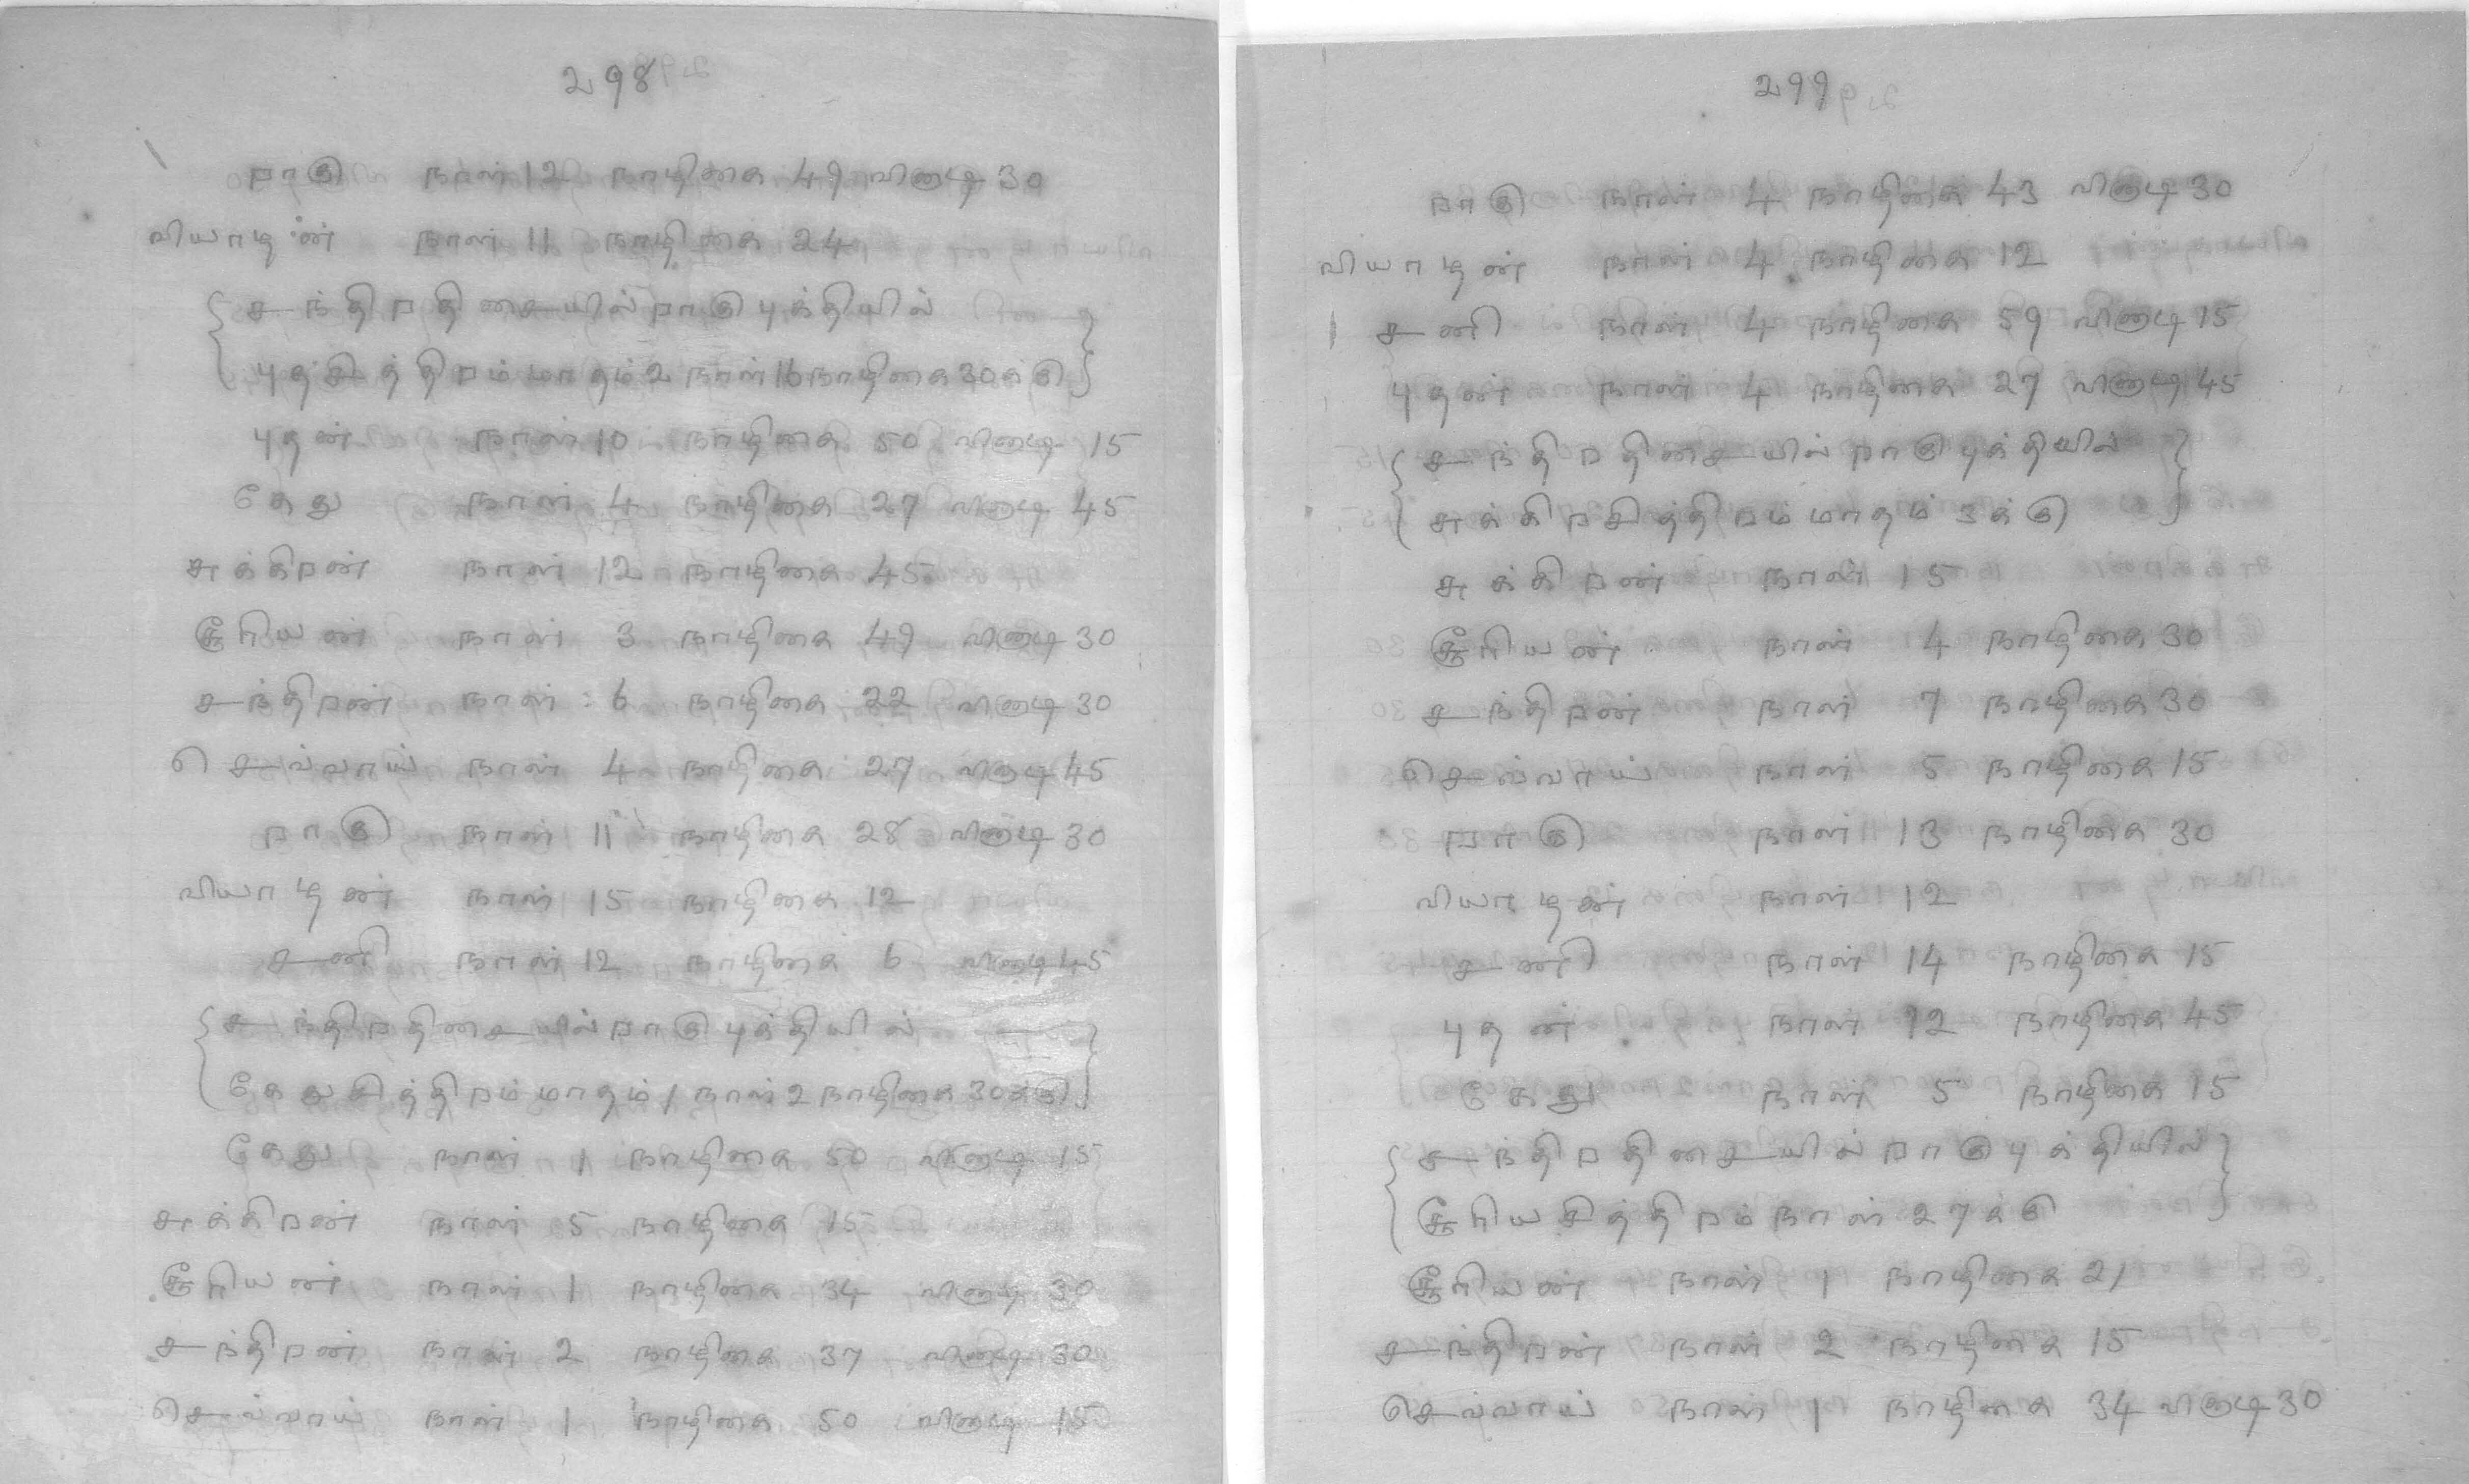 298
ராகு நாள் 12 நாழிகை 49 வினாடி 30
வியாழன் நாள் 11 நாழிகை 24
சந்திரதிசையில் ராகு புக்தியில்
புதசித்திரம் மாதம் 2 நாள் 16 நாழிகை 30க்கு
புதன் நாள் 10 நாழிகை 50 வினாடி 15
கேது நாள் 4 நாழிகை 27 வினாடி 45
சுக்கிரன் நாள் 12 நாழிகை 45
சூரியன் நாள் 3 நாழிகை 49 வினாடி 30
சந்திரன் நாள் 6 நாழிகை 22 வினாடி 30
செவ்வாய் நாள் 4 நாழிகை 27 வினாடி 45
ராகு நாள் 11 நாழிகை 28 வினாடி 30
வியாழன் நாள் 15 நாழிகை 12
சனி நாள் 12 நாழிகை 6 வினாடி 45
சந்திரதிசையில் ராகு புக்தியில்
கேதுசித்திரம் மாதம் 1 நாள் 2 நாழிகை 30க்கு
கேது நாள் 1 நாழிகை 50 வினாடி 15
சுக்கிரன் நாள் 5 நாழிகை 15
சூரியன் நாள் 1 நாழிகை 34 வினாடி 30
சந்திரன் நாள் 2 நாழிகை 37 வினாடி 30
செவ்வாய் நாள் 1 நாழிகை 50 வினாடி 15
299
ராகு நாள் 4 நாழிகை 43 வினாடி 30
வியாழன் நாள் 4 நாழிகை 12
சனி நாள் 4 நாழிகை 59 வினாடி 15
புதன் நாள் 4 நாழிகை 27 வினாடி 45
சந்திரதிசையில் ராகு புக்தியில்
சுக்கிரசித்திரம் மாதம் 3க்கு
சுக்கிரன் நாள் 15
சூரியன் நாள் 4 நாழிகை 30
சந்திரன் நாள் 7 நாழிகை 30
செவ்வாய் நாள் 5 நாழிகை 15
ராகு நாள் 13 நாழிகை 30
வியாழன் நாள் 12
சனி நாள் 14 நாழிகை 15
புதன் நாள் 12 நாழிகை 45
கேது நாள் 5 நாழிகை 15
சந்திரதிசையில் ராகு புக்தியில்
சூரியசித்திரம் நாள் 27க்கு
சூரியன் நாள் 1 நாழிகை 21
சந்திரன் நாள் 2 நாழிகை 15
செவ்வாய் நாள் 1 நாழிகை 34 வினாடி 30